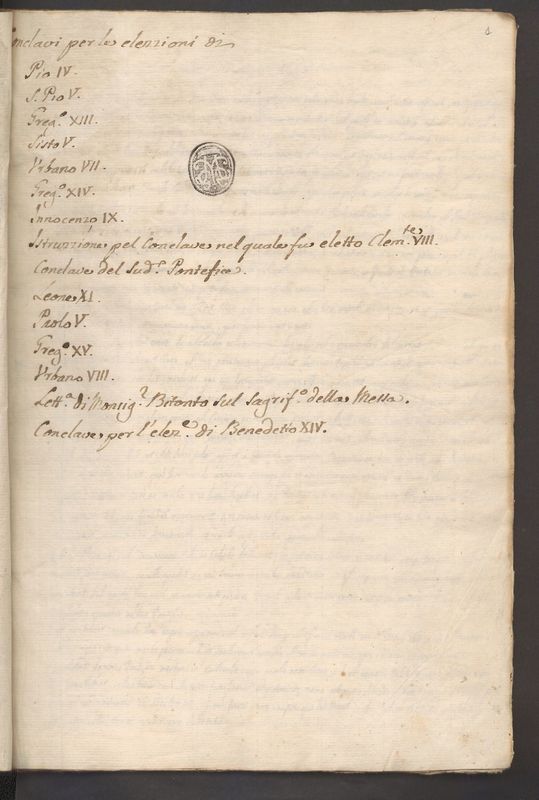 Conclavi per le elezzioni di
Pio IV.
S. Pio V.
Greg.º XIII.
Sisto V.
Urbano VII.
Greg.º XIV.
Innocenzo IX.
Istruzzione pel Conclave nel quale fu eletto Clem.te VIII.
Conclave del Sud.º Pontefice.
Leone XI.
Paolo V.
Greg.º XV.
Urbano VIII.
Lett.ª di Monsig.r Bitonto sul Sagrif.º della Messa.
Conclave per l'elez.e di Benedetto XIV.